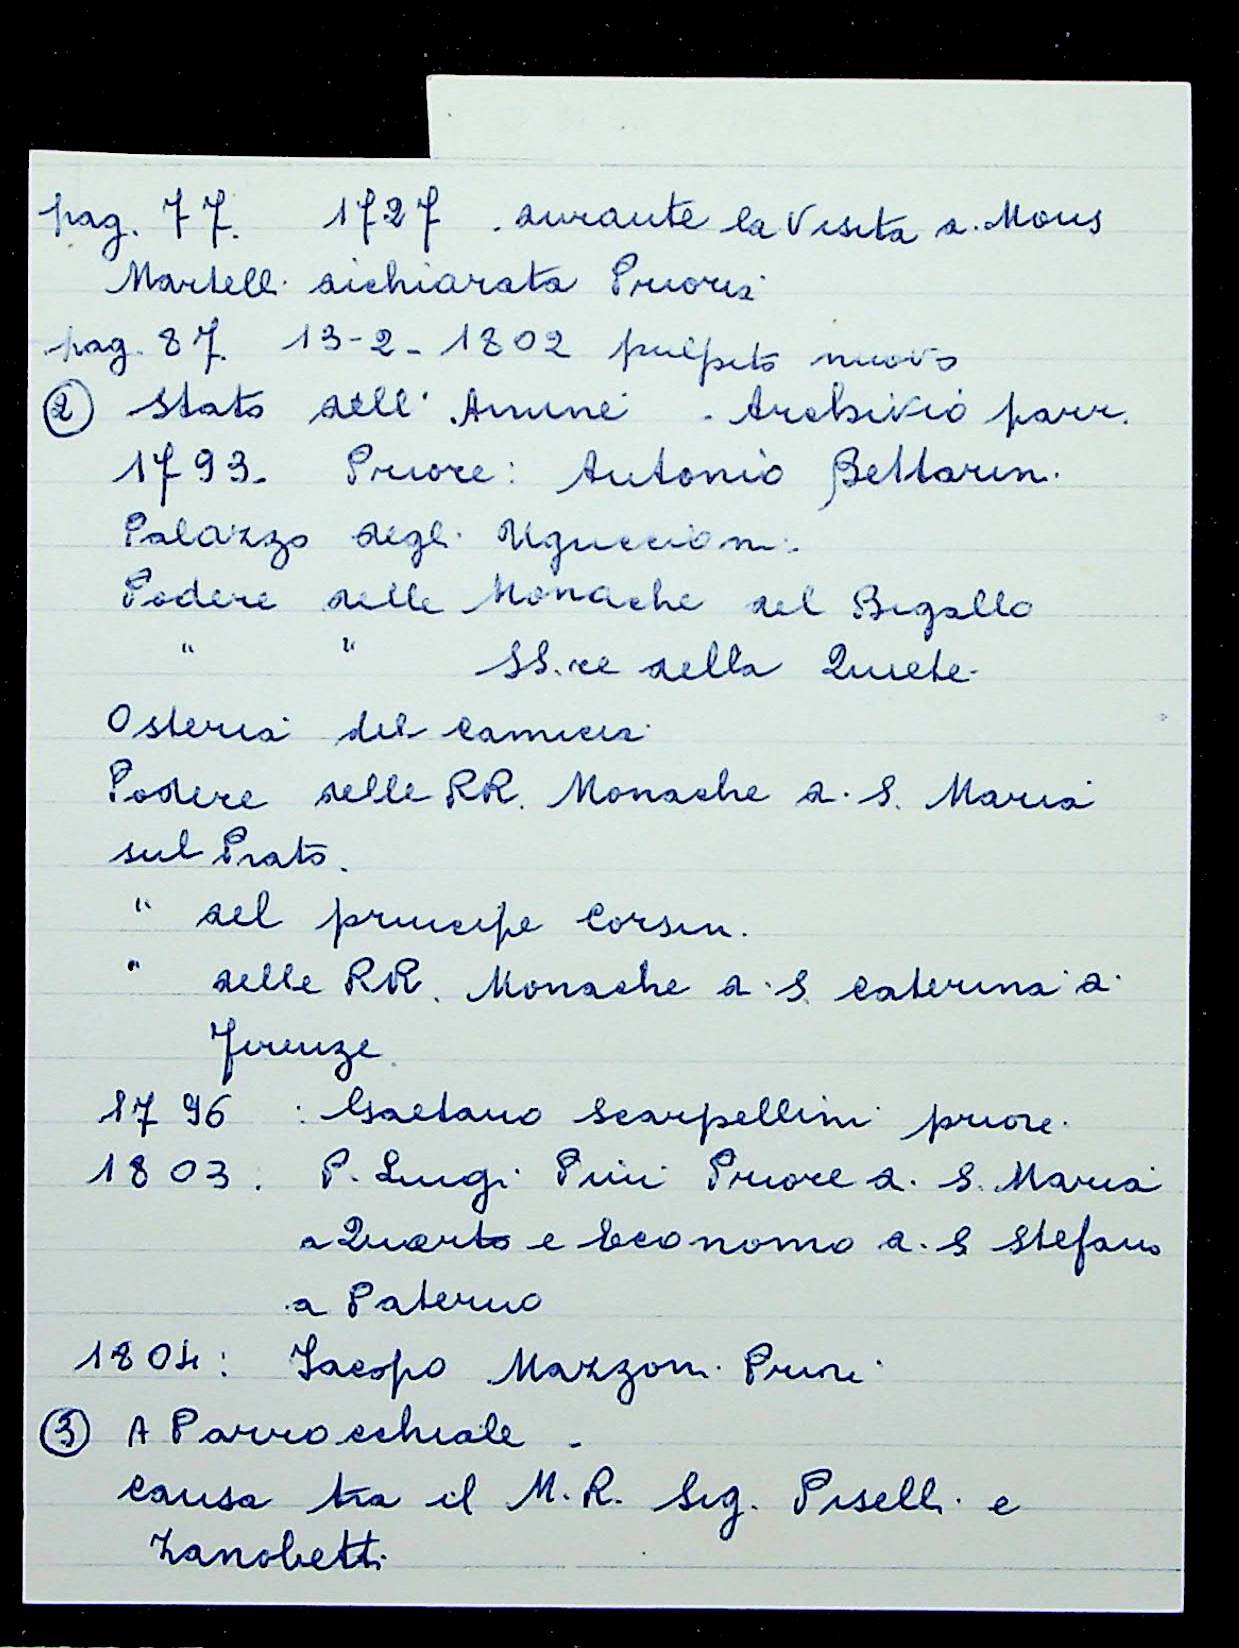 pag. 77. 1727. durante la Visita di Mons
Martelli dichiarata Prioria
pag. 87. 13-2-1802 pulpito nuovo
② Stato dell'Anime - Archivio parr.
1793. Priore: Antonio Bettarini
Palazzo degli Uguccioni.
Podere delle Monache del Bigallo
" " SS.re della Quiete
Osteria del Camicia
Podere delle RR. Monache di S. Maria
sul Prato.
" del principe Corsini.
" delle RR. Monache di S. Caterina di
Firenze.
1796 : Gaetano Scarpellini priore.
1803. P. Luigi Pini Priore di S. Maria
a Quarto e Economo di S Stefano
a Paterno
1804: Jacopo Mazzoni Priore
③ A Parrocchiale -
Causa tra il M. R. Sig. Piselli e
Zanobetti